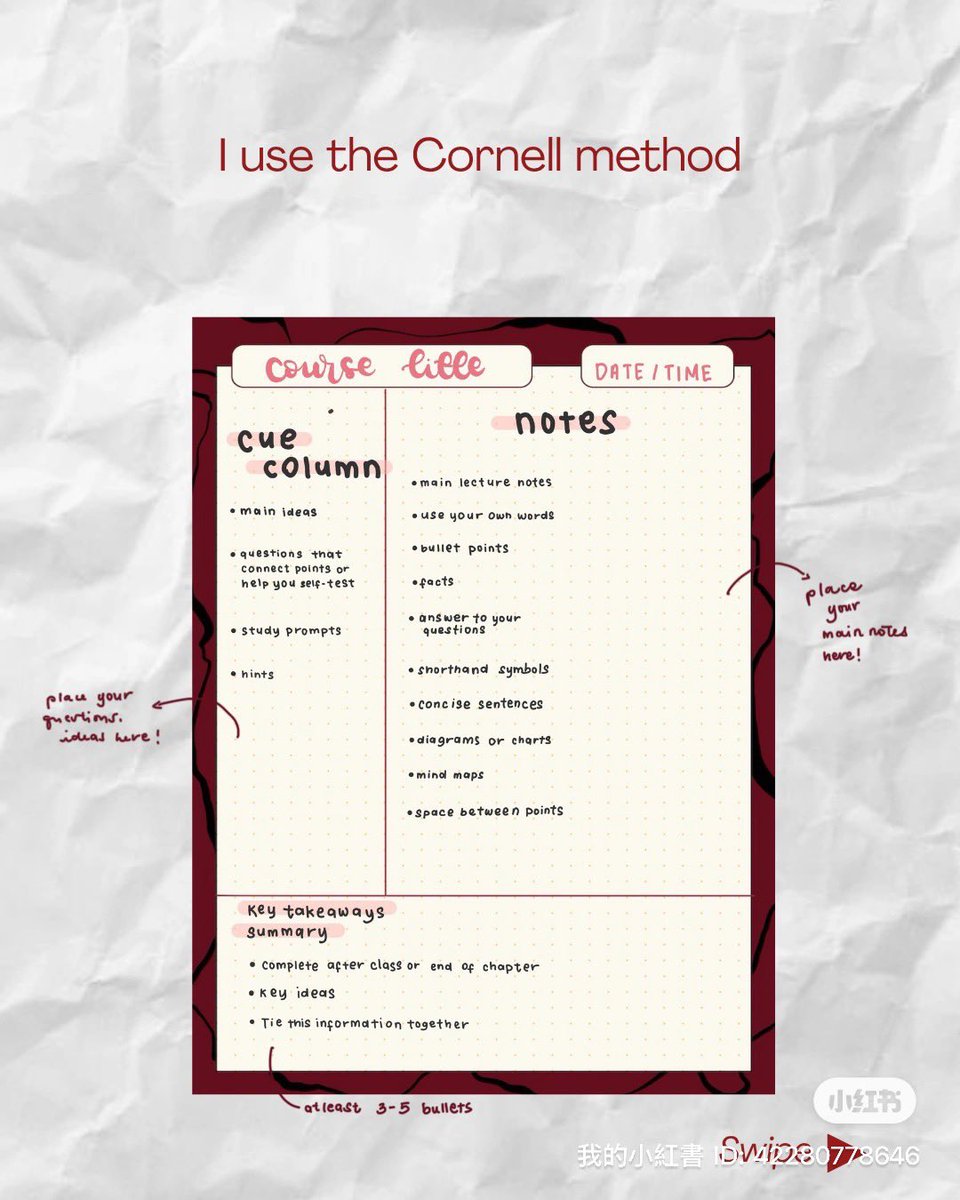 I use the Cornell method
course title
DATE / TIME
cue
column
• main ideas
• questions that
connect points or
help you self-test
• study prompts
• hints
notes
• main lecture notes
• use your own words
• bullet points
• facts
• answer to your
questions
• shorthand symbols
• concise sentences
• diagrams or charts
• mind maps
• space between points
place
your
main notes
here!
place your
questions.
ideas here!
Key takeaways
summary
• Complete after class or end of chapter
• Key ideas
• Tie this information together
atleast 3-5 bullets
小红书
Swipe
我的小紅書 ID: 42280778646